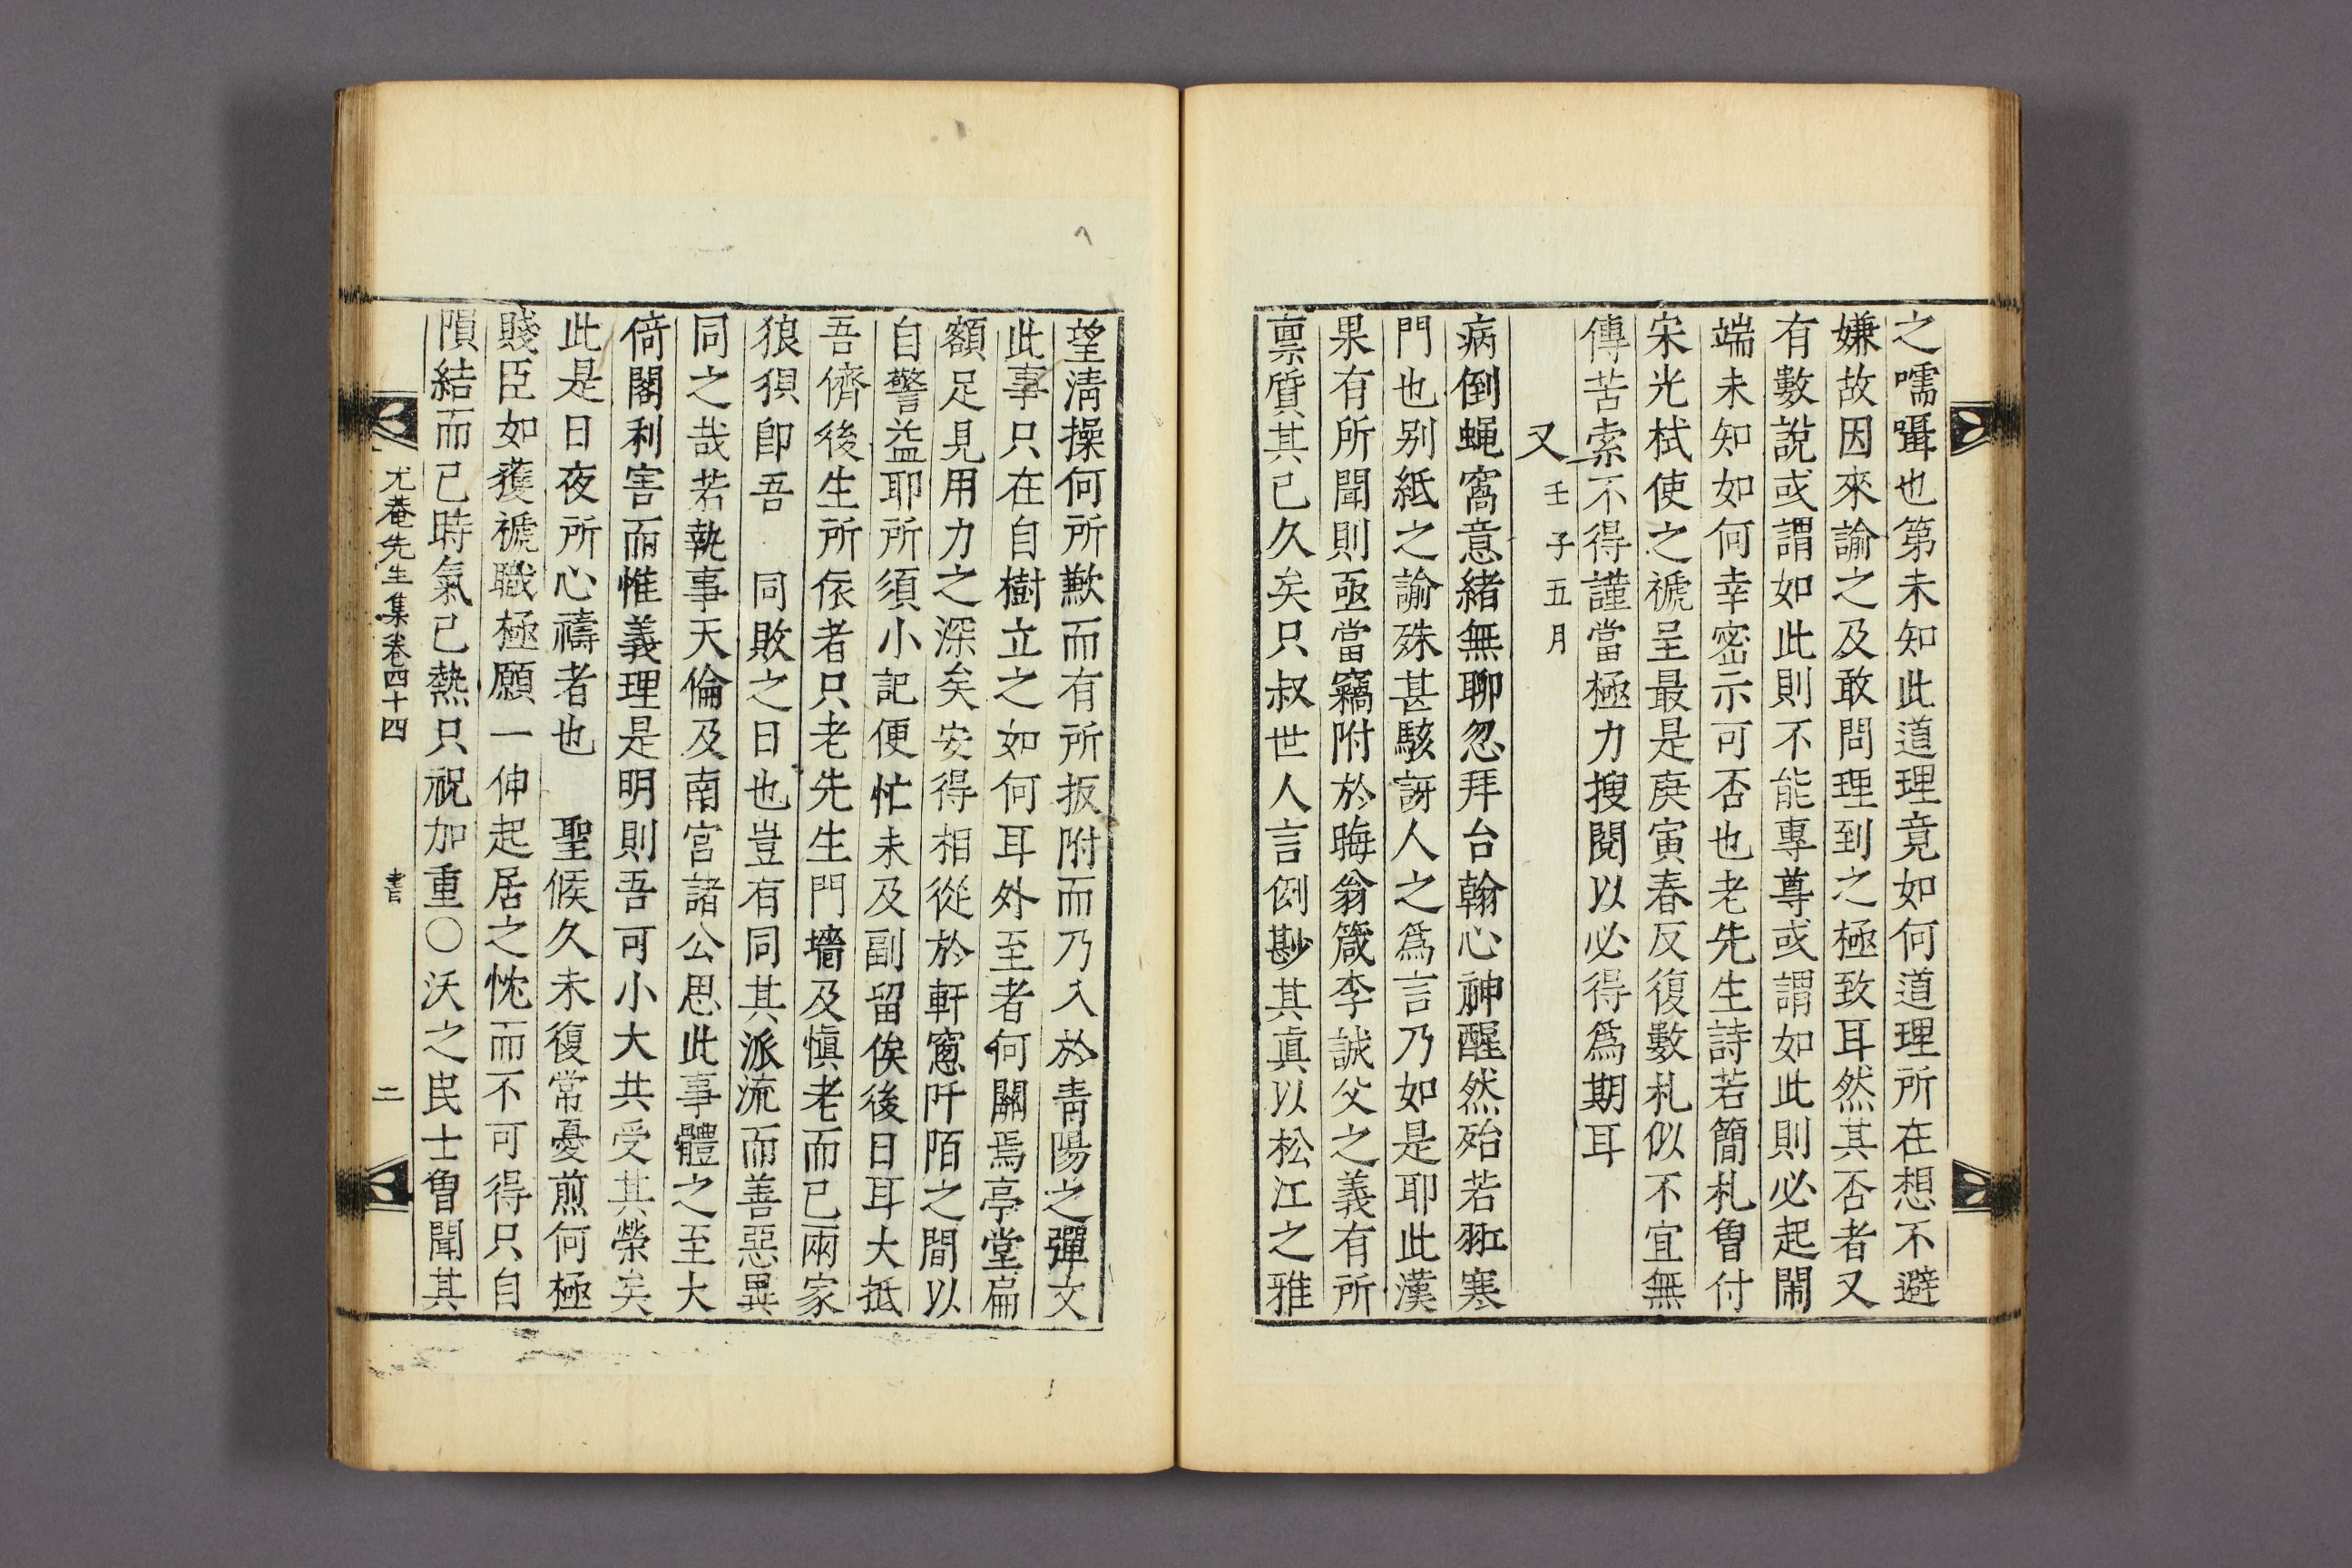 之嚅囁也第未知此道理竟如何道理所在想不避
嫌故因來諭之及敢問理到之極致耳然其否者又
有數說或謂如此則不能專尊或謂如此則必起鬧
端未知如何幸密示可否也老先生詩若簡札曾付
宋光栻使之褫呈最是庚寅春反復數札似不宜無
傳苦索不得謹當極力搜閱以必得爲期耳
又 壬子五月
病倒蝿窩意緒無聊忽拜台翰心神醒然殆若瓾寒
門也別紙之諭殊甚駭訝人之爲言乃如是耶此漢
果有所聞則亟當竊附於晦翁箴李誠父之義有所
禀質其已久矣只叔世人言例尠其眞以松江之雅
望淸操何所歉而有所扳附而乃入於靑陽之彈文
此事只在自樹立之如何耳外至者何關焉亭堂扁
額足見用力之深矣安得相從於軒窓阡陌之間以
自警益耶所須小記便忙未及副留俟後日耳大抵
吾儕後生所依者只老先生門墻及愼老而已兩家
狼狽卽吾 同敗之日也豈有同其派流而善惡異
同之哉若執事天倫及南宮諸公思此事體之至大
倚閣利害而惟義理是明則吾可小大共受其榮矣
此是日夜所心禱者也 聖候久未復常憂煎何極
賤臣如獲褫職極願一伸起居之忱而不可得只自
隕結而已時氣已熱只祝加重〇沃之民士曾聞其
尤菴先生集卷四十四 書 二